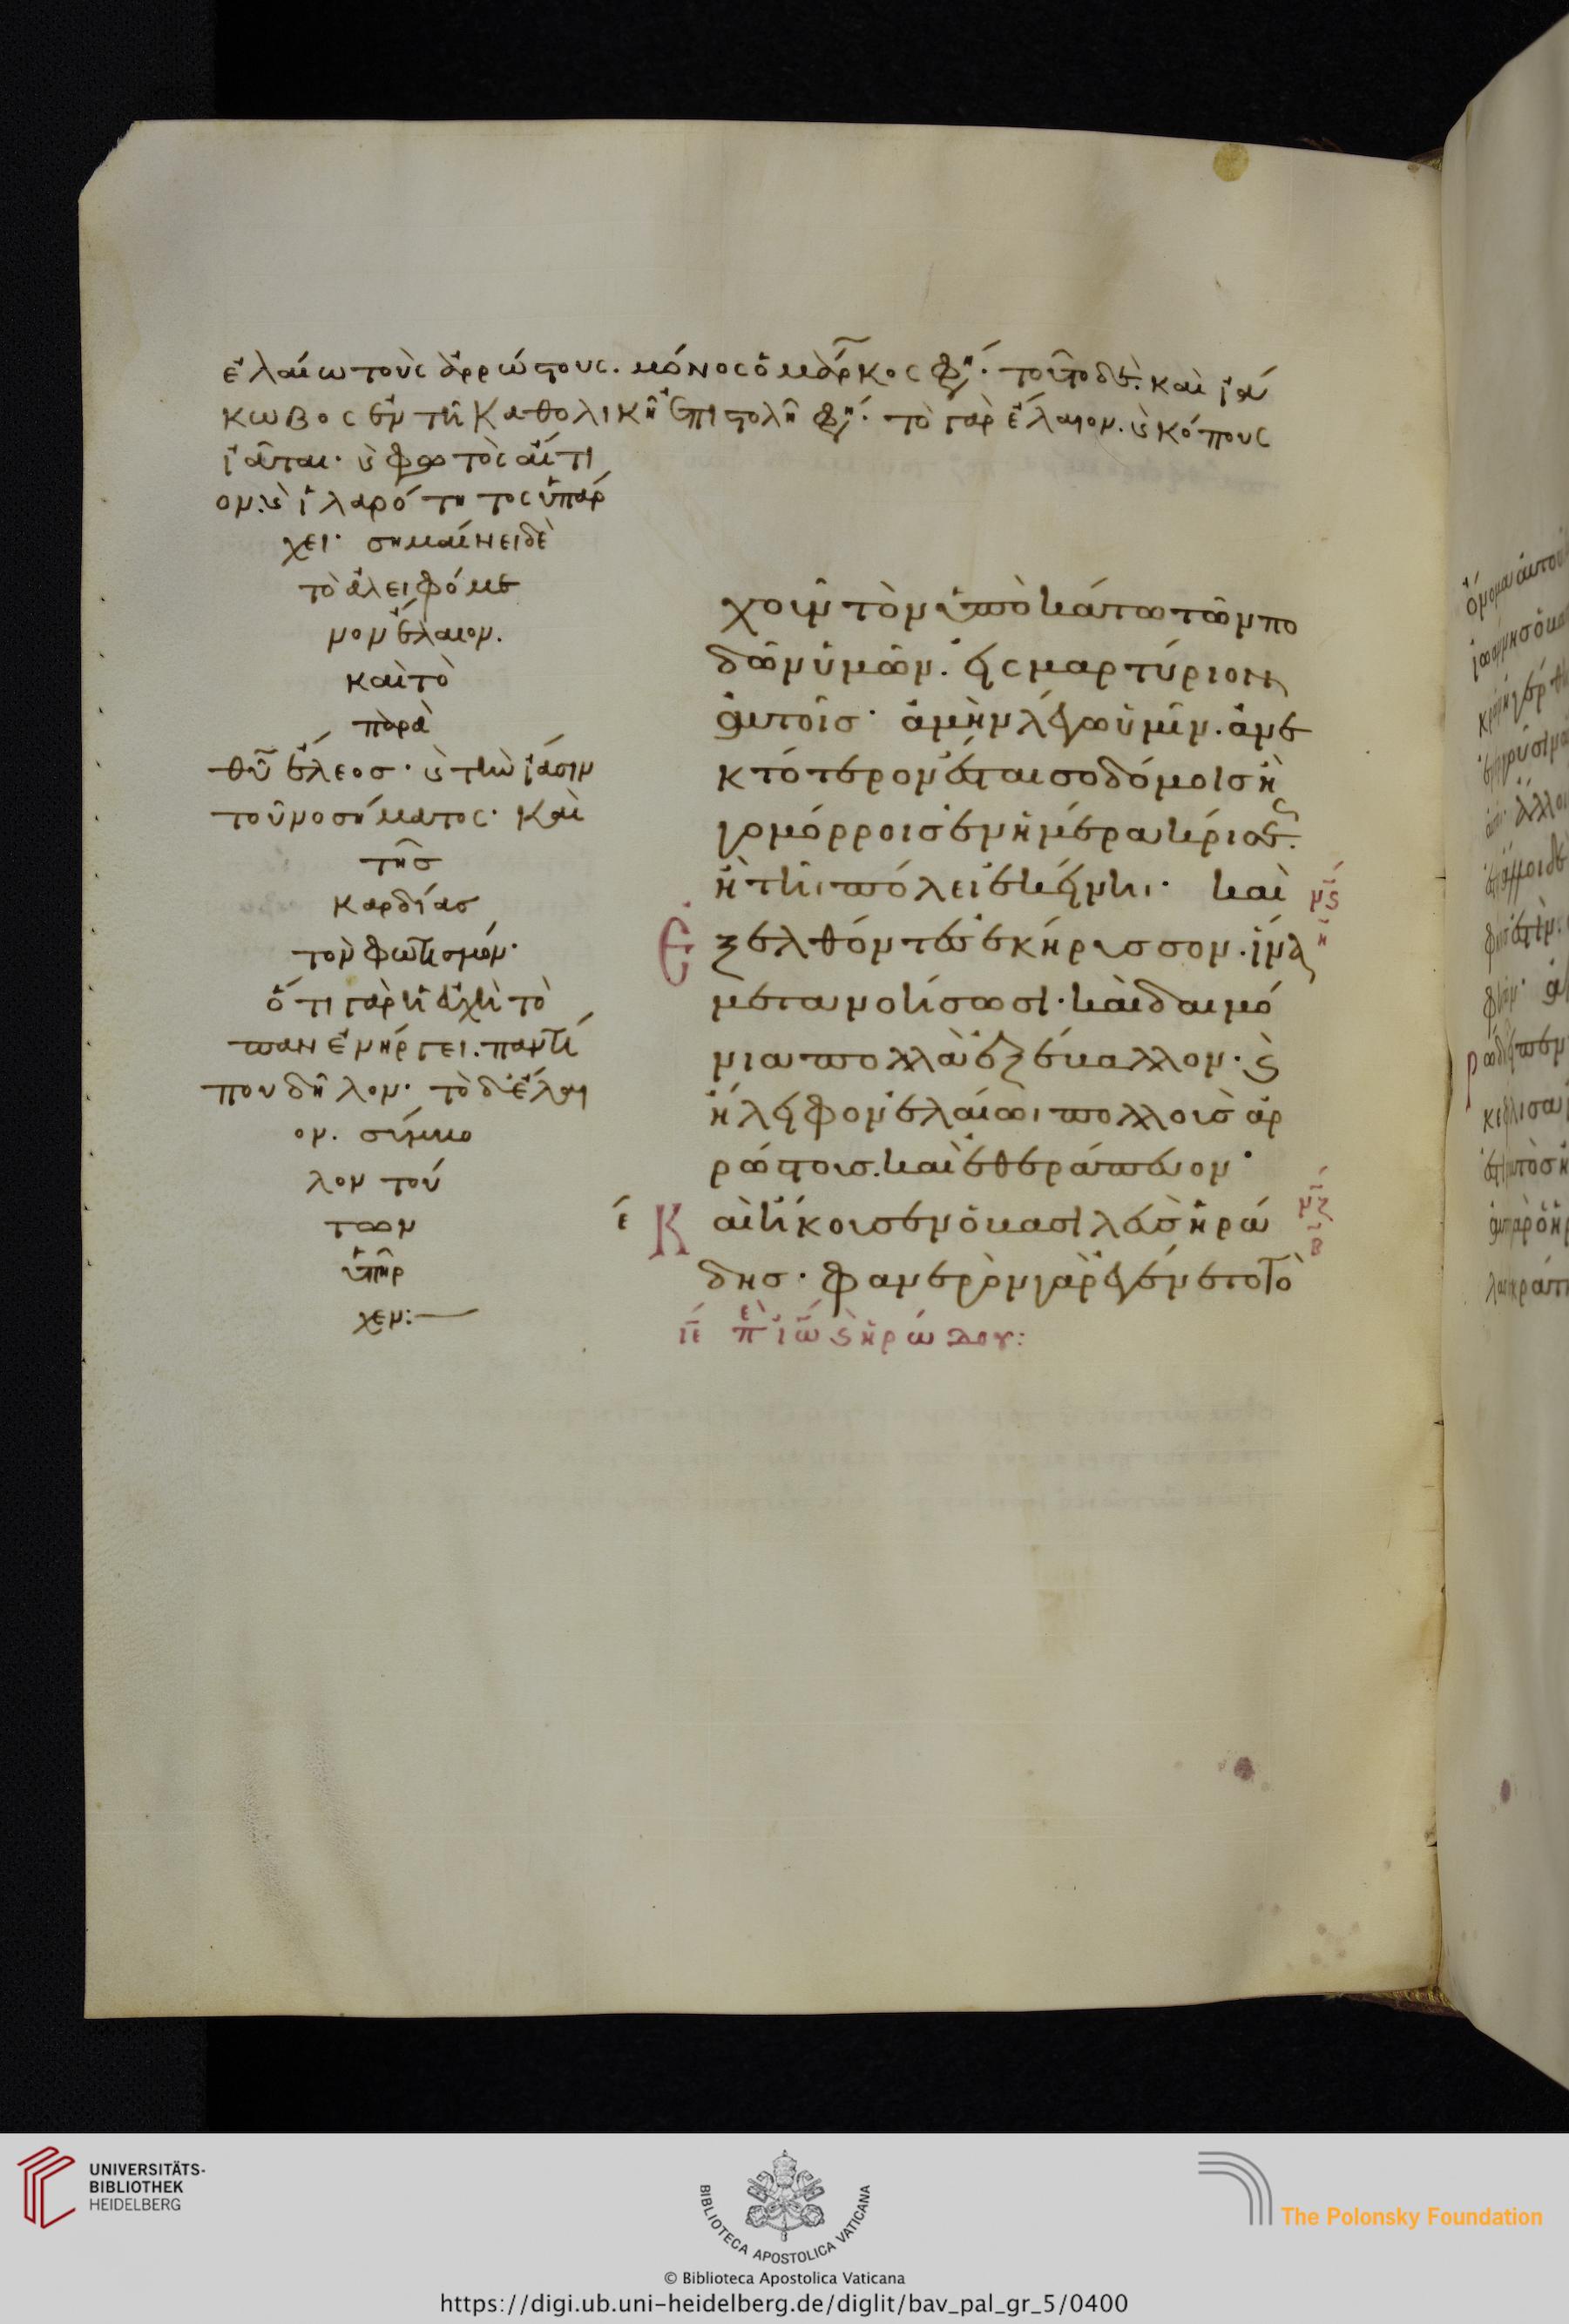 ἐλαίω τοὺς ἀρρώστους. μόνος ὁ μάρκος φη. τοῦτο δὲ. καὶ ϊά
κωβος ἐν τῆ καθολικῆ ἐπιστολῆ φη. τὸ γὰρ ἔλαιον. ϗ κόπους
ϊᾶται. ϗ φωτὸς αἴτι
ον. ϗ ϊλαρότητος ὑπάρ
χει. σημαίνει δὲ
τὸ ἀλειφόμε
νον ἔλαιον.
καὶ τὸ
παρὰ
θῦ ἔλεος. ϗ τὴν ϊάσιν
τοῦ νοσήματος. καὶ
τῆς
καρδίας
τὸν φωτισμόν.
ὅτι γὰρ ἡ εὐχὴ τὸ
πᾶν ἐνήργει. παντί
που δῆλον. τὸ δ' ἔλαι
ον. σύμβο
λον τού
των
ὑπῆρ
χεν:
χοῦν τὸν ὑποκάτω τῶν πο
δῶν ὑμῶν. εἰς μαρτύριον
αὐτοῖς. ἀμὴν λέγω ὑμῖν. ἀνε
κτότερον ἔσται σοδόμοις ἢ
γομόρροις ἐν ἡμέρα κρίσεως.
ἢ τῆ πόλει ἐκείνη. καὶ μς
η
Ἐξελθόντες ἐκήρυσσον. ἵνα
μετανοήσωσι. καὶ δαιμό
νια πολλὰ ἐξέβαλλον. ϗ
ἤλειφον ἐλαίω πολλοὺς ἀρ
ρώστους. καὶ ἐθεράπευον.
ι Καὶ ἤκουσεν ὁ βασιλεὺς ἡρώ μζ
β
δης. φανερὸν γὰρ ἐγένετο τὸ
ιε περὶ ἰω ϗ ἡρώδου:
UNIVERSITÄTS-
BIBLIOTHEK
HEIDELBERG
BIBLIOTECA APOSTOLICA VATICANA
© Biblioteca Apostolica Vaticana
The Polonsky Foundation
https://digi.ub.uni-heidelberg.de/diglit/bav_pal_gr_5/0400